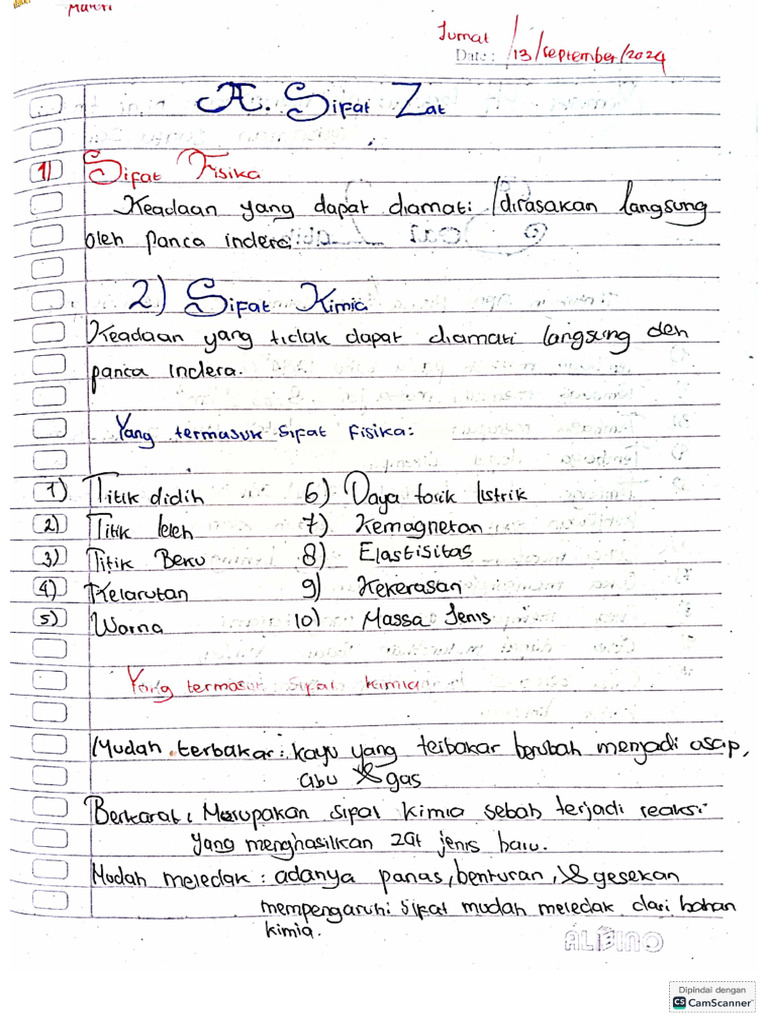 Materi
Jumat
Date: 13/september/2024
A. Sifat Zat
1) Sifat Fisika
Keadaan yang dapat diamati /dirasakan langsung
oleh panca indera
2) Sifat Kimia
Keadaan yang tidak dapat diamati langsung den
panca indera.
Yang termasuk sifat fisika:
1) Titik didih 6) Daya tarik listrik
2) Titik leleh 7) Kemagnetan
3) Titik Beku 8) Elastisitas
4) Kelarutan 9) Kekerasan
5) Warna 10) Massa Jenis
Yang termasuk sifat kimia
Mudah terbakar: kayu yang terbakar berubah menjadi asap,
abu & gas
Berkarat: Merupakan sifat kimia sebab terjadi reaksi
yang menghasilkan zat jenis baru.
Mudah meledak: adanya panas, benturan, & gesekan
mempengaruhi sifat mudah meledak dari bahan
kimia.
ALBINO
Dipindai dengan
CS CamScanner